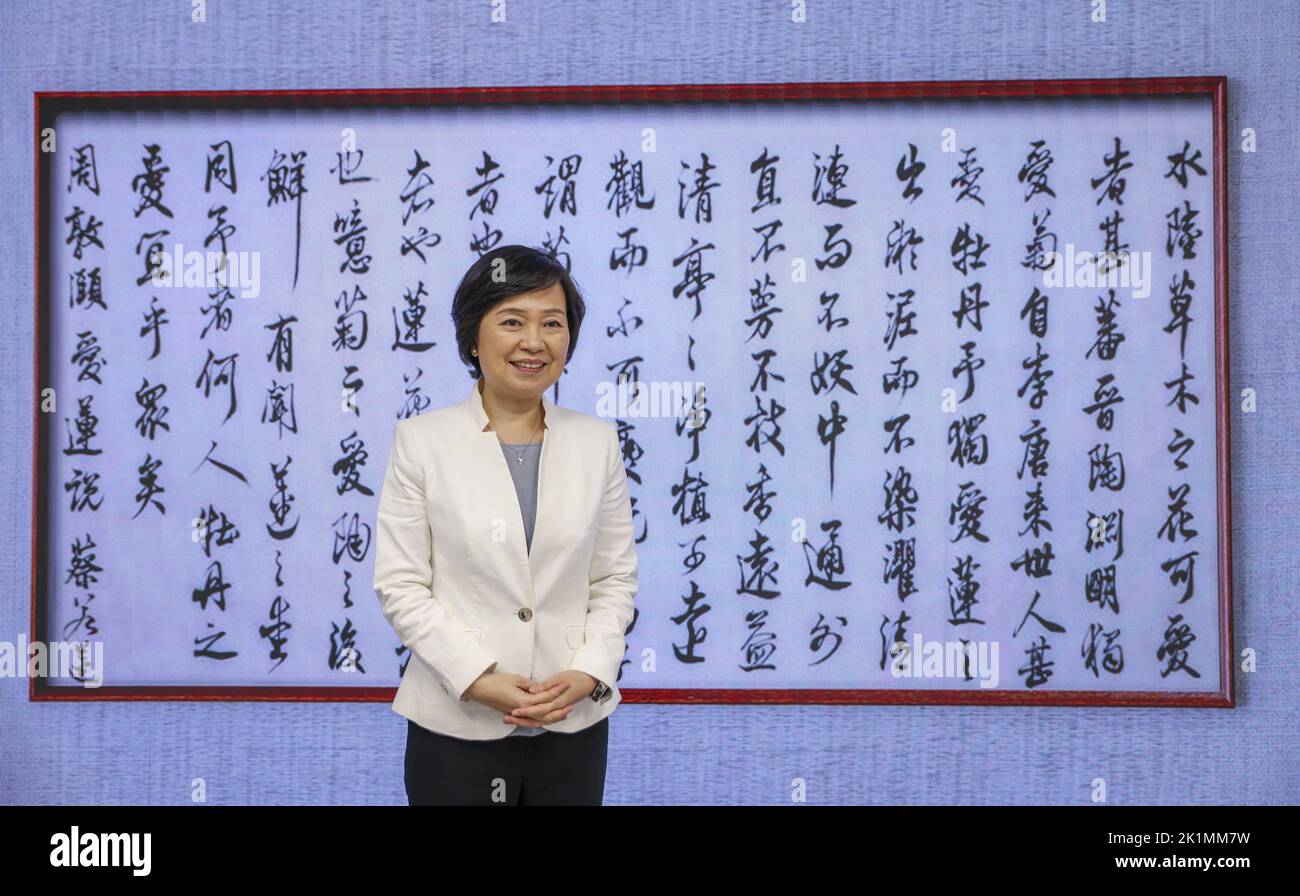 水陸草木之花可愛
者甚蕃晉陶淵明獨
愛菊自李唐來世人甚
愛牡丹予獨愛蓮之
出淤泥而不染濯清
漣而不妖中通外
直不蔓不枝香遠益
清亭〻淨植可遠
觀而不可褻玩
謂菊
者也
者也蓮花
也噫菊之愛陶之後
鮮有聞蓮之愛
同予者何人牡丹之
愛宜乎眾矣
周敦頤愛蓮說 蔡若蓮
alamy
Image ID: 2K1MM7W
www.alamy.com